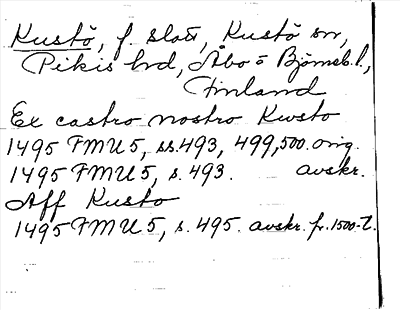 Kustö, f. slott, Kustö sn,
Pikis hd, Åbo o Björneb. l.,
Finland
Ex castro nostro Kwsto
1495 FMU 5, ss. 493, 499, 500. orig.
1495 FMU 5, s. 493. avskr.
Aff Kusto
1495 FMU 5, s. 495. avskr. fr. 1500-t.